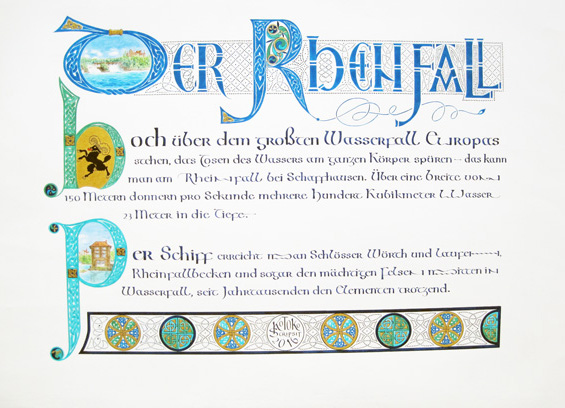 Der Rheinfall
Hoch über dem größten Wasserfall Europas
stehen, das Tosen des Wassers am ganzen Körper spüren -- das kann
man am Rheinfall bei Schaffhausen. Über eine Breite von
150 Metern donnern pro Sekunde mehrere hundert Kubikmeter Wasser
23 Meter in die Tiefe.
Per Schiff erreicht man Schlösser Wörth und Laufen
Rheinfallbecken und sogar den mächtigen Felsen inmitten im
Wasserfall, seit Jahrtausenden den Elementen trotzend.